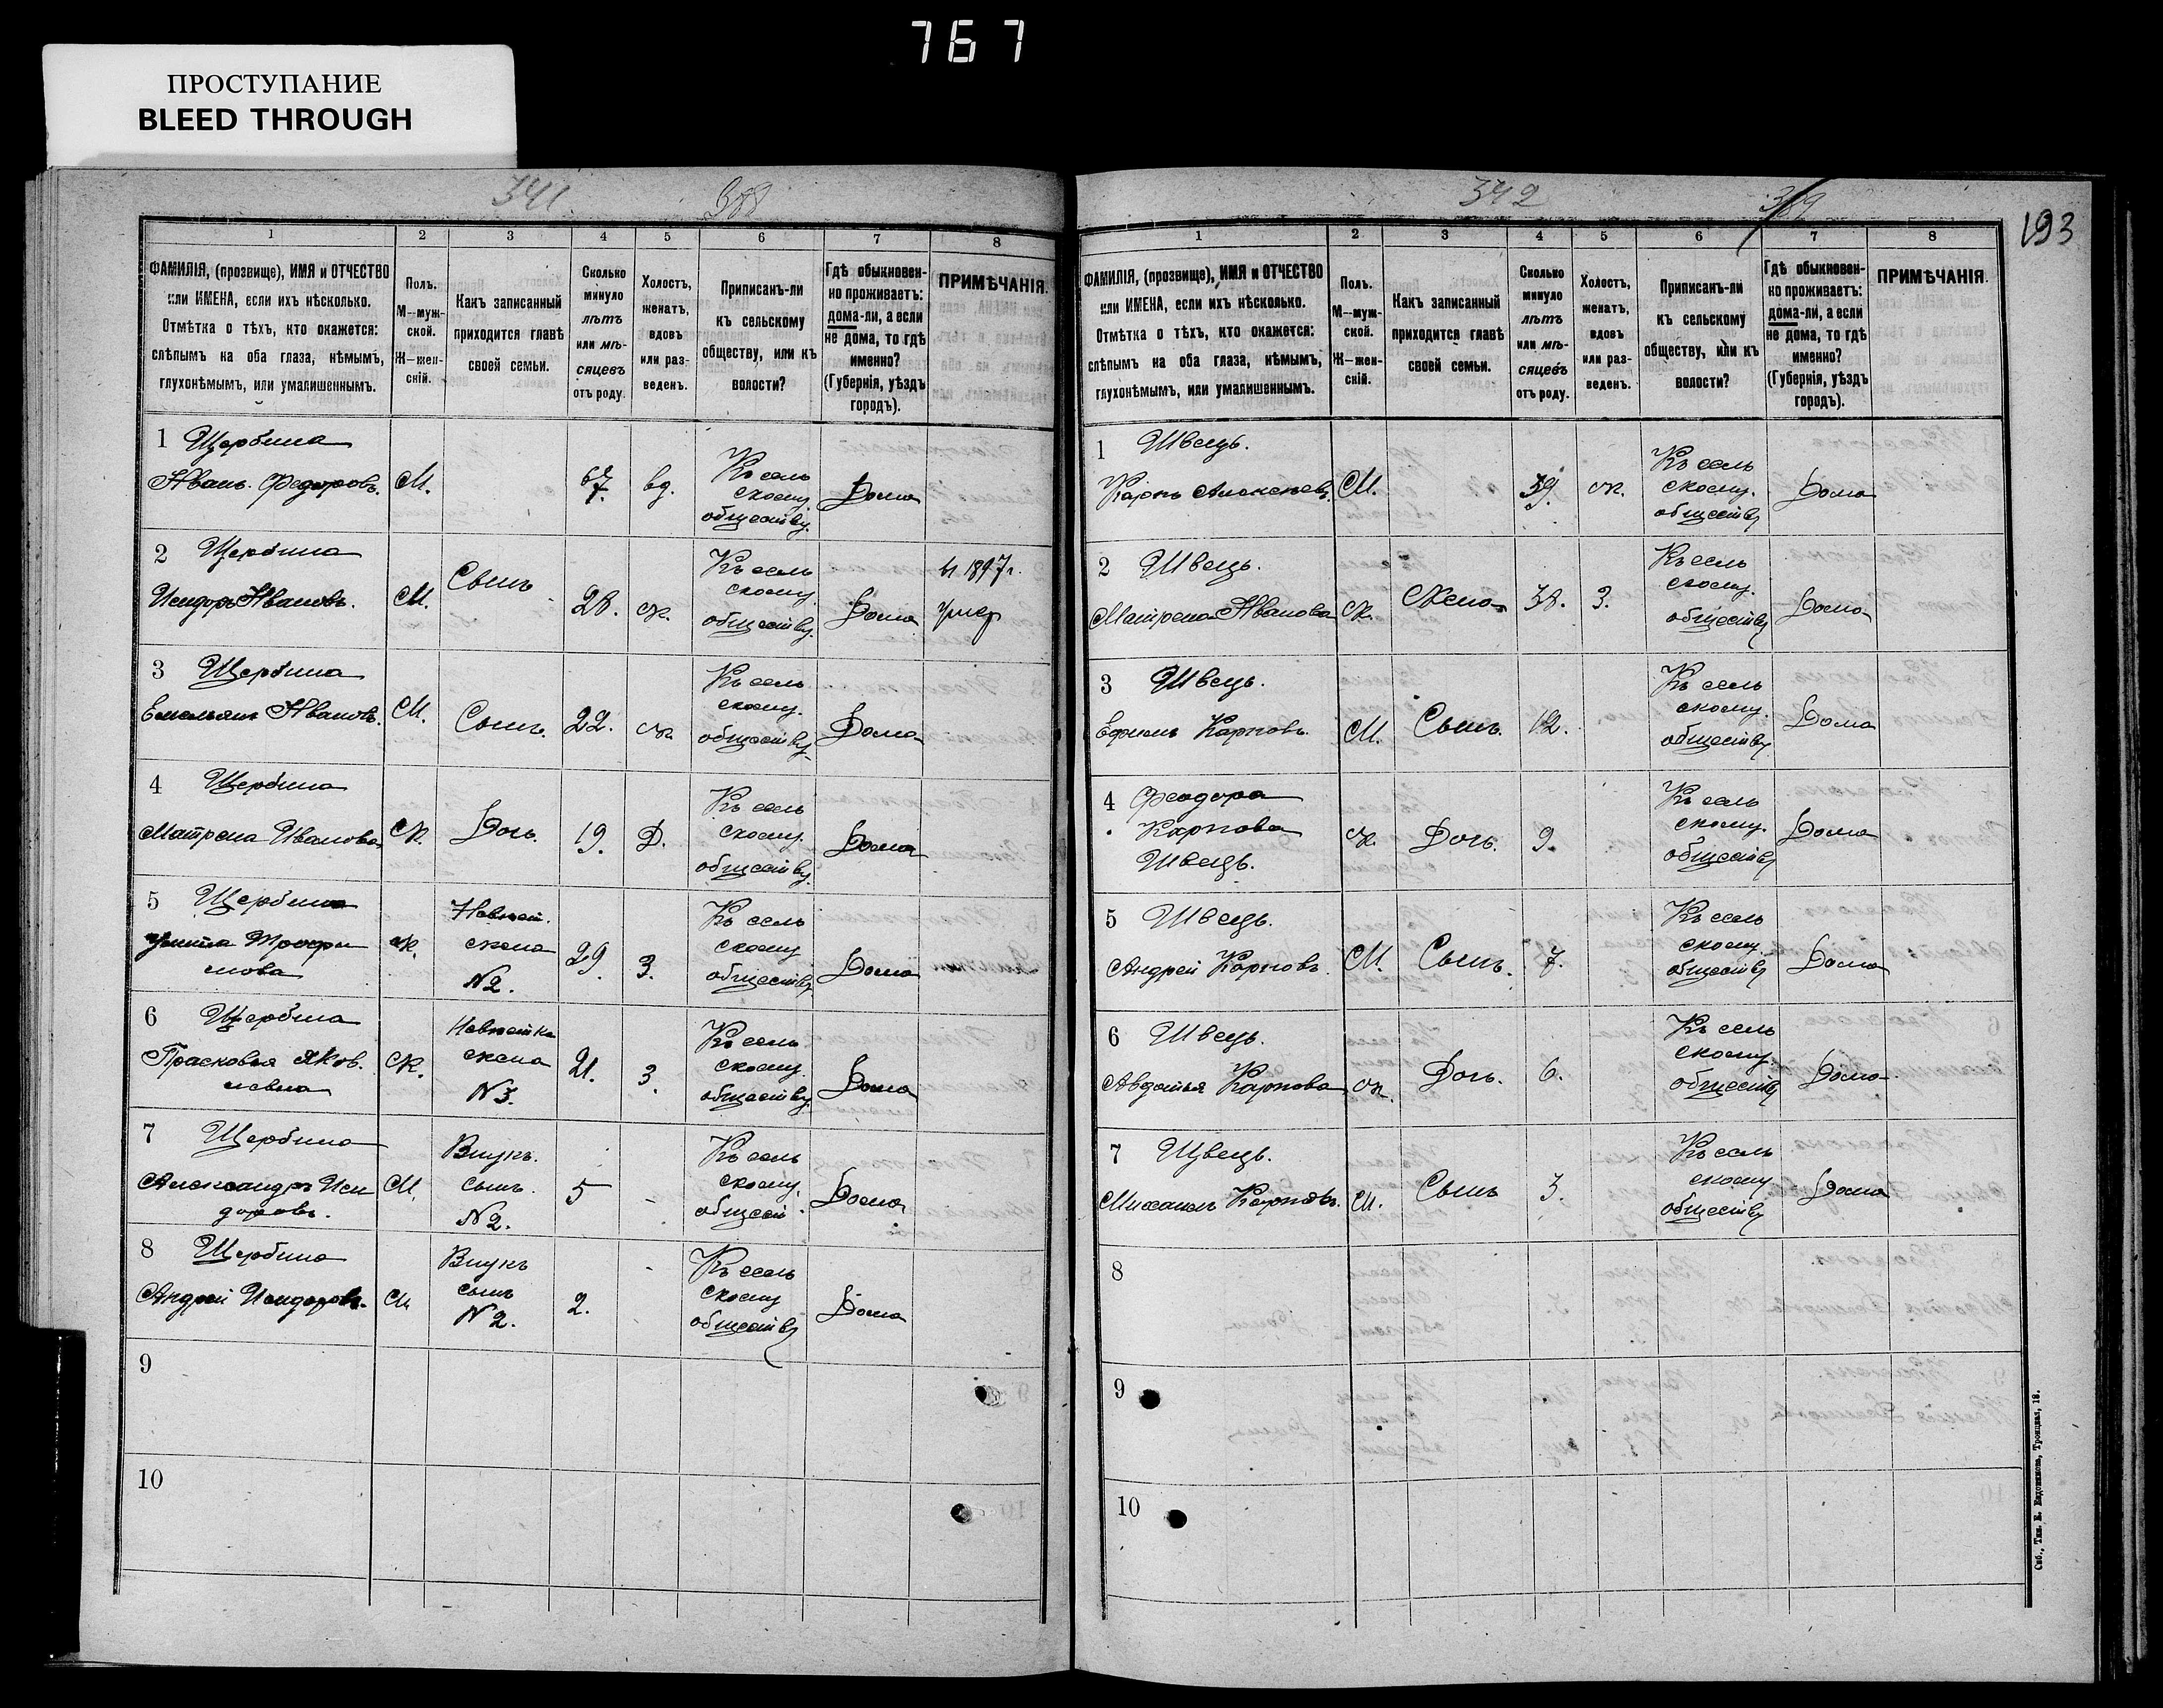 767
ПРОСТУПАНИЕ
BLEED THROUGH
341
388
1 2 3 4 5 6 7 8
ФАМИЛІЯ, (прозвище), ИМЯ и ОТЧЕСТВО
или ИМЕНА, если ихъ нѣсколько.
Отмѣтка о тѣхъ, кто окажется:
слѣпымъ на оба глаза, нѣмымъ,
глухонѣмымъ, или умалишеннымъ.
Полъ.
М—муж-
ской.
Ж—жен-
скій.
Какъ записанный
приходится главѣ
своей семьи.
Сколько
минуло
лѣтъ
или мѣ-
сяцевъ
отъ роду.
Холостъ,
женатъ,
вдовъ
или раз-
веденъ.
Приписанъ-ли
къ сельскому
обществу, или къ
волости?
Гдѣ обыкновен-
но проживаетъ:
дома-ли, а если
не дома, то гдѣ
именно?
(Губернія, уѣздъ
городъ).
ПРИМѢЧАНІЯ.
1 Щербина
Иванъ Федоровъ. М. 67. вд. Къ сель
скому
обществу. Дома
2 Щербина
Исидоръ Ивановъ. М. Сынъ 28. ж. Къ сель
скому
обществу. Дома
1897 г.
умер
3 Щербина
Емельянъ Ивановъ. М. Сынъ. 22. ж. Къ сель
скому.
обществу Дома
4 Щербина
Матрена Иванова Ж. Дочь. 19. Д. Къ сель
скому.
обществу. Дома
5 Щербина
Улита Трофи
мова Ж. Невѣст.
жена
№2. 29. З. Къ сель
скому
обществу Дома
6 Щербина
Прасковья Яков.
левна Ж. Невѣстка
жена
№3. 21. З. Къ сель
скому.
обществу. Дома
7 Щербина
Александръ Иси
доровъ. М. Внукъ.
сынъ.
№2. 5 - Къ сель
скому.
общест. Дома
8 Щербина
Андрей Исидоровъ. М Внукъ
сынъ
№2. 2. - Къ сель
скому
обществу Дома
9
10
342
389
193
1 2 3 4 5 6 7 8
ФАМИЛІЯ, (прозвище), ИМЯ и ОТЧЕСТВО
или ИМЕНА, если ихъ нѣсколько.
Отмѣтка о тѣхъ, кто окажется:
слѣпымъ на оба глаза, нѣмымъ,
глухонѣмымъ, или умалишеннымъ.
Полъ.
М—муж-
ской.
Ж—жен-
скій.
Какъ записанный
приходится главѣ
своей семьи.
Сколько
минуло
лѣтъ
или мѣ-
сяцевъ
отъ роду.
Холостъ,
женатъ,
вдовъ
или раз-
веденъ.
Приписанъ-ли
къ сельскому
обществу, или къ
волости?
Гдѣ обыкновен-
но проживаетъ:
дома-ли, а если
не дома, то гдѣ
именно?
(Губернія, уѣздъ
городъ).
ПРИМѢЧАНІЯ.
1 Швець.
Карпъ Алексѣевъ. М. 39. ж. Къ сель
скому.
обществу Дома
2 Швець.
Матрена Иванова Ж. Жена 38. З. Къ сель
скому.
обществу Дома
3 Швець.
Ефимъ Карповъ. М. Сынъ. 12. Къ сель
скому.
обществу Дома
4 Феодора
Карпова
Швець. ж. Дочь. 9. Къ сель
скому.
обществу Дома
5 Швець.
Андрей Карповъ. М. Сынъ. 7. Къ сель
скому
обществу Дома
6 Швець.
Авдотья Карпова ж. Дочь. 6. Къ сель
скому
обществу Дома.
7 Швець.
Михаилъ Карповъ. М. Сынъ 3. Къ сель
скому
обществу Дома
8
9
10
Спб., Тип. Е. Евдокимова, Троицкая, 18.